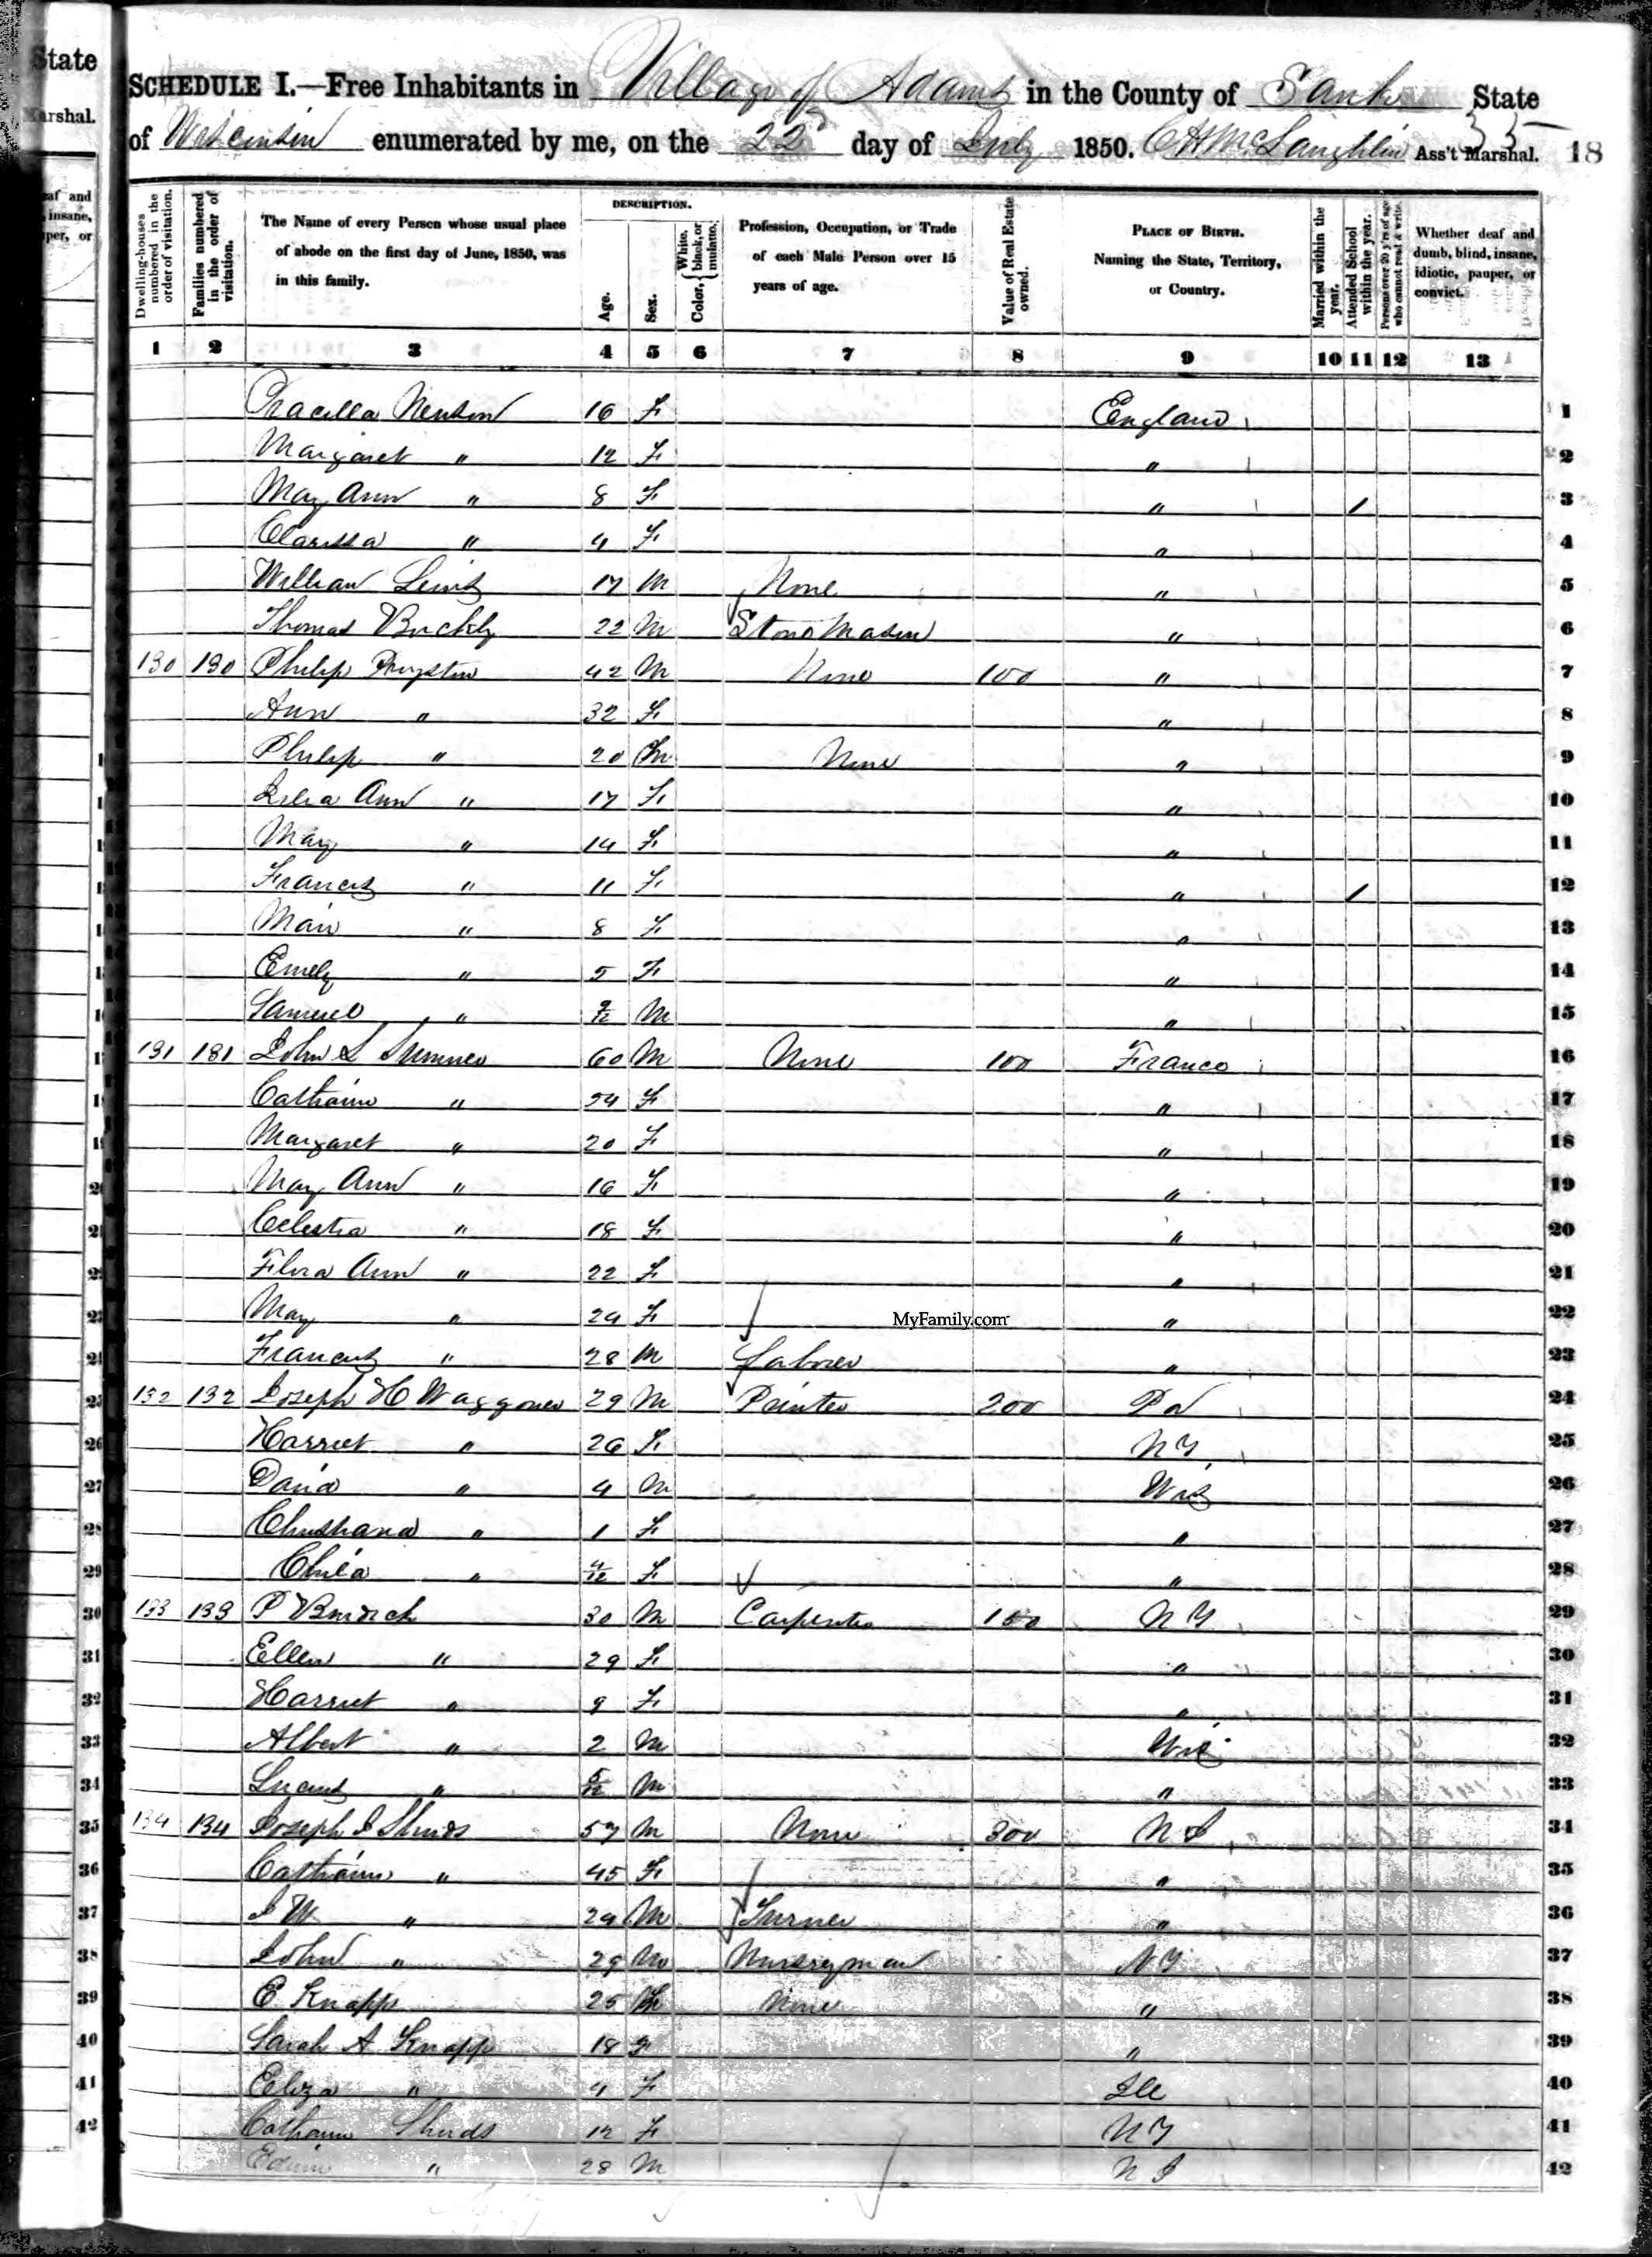 State
Marshal.
SCHEDULE I.—Free Inhabitants in Village of Adams in the County of Sauk State
of Wisconsin enumerated by me, on the 22d day of July 1850. C H McLaughlin Ass't Marshal. 18
Dwelling-houses numbered in the order of visitation.
Families numbered in the order of visitation.
The Name of every Person whose usual place of abode on the first day of June, 1850, was in this family.
DESCRIPTION.
Age.
Sex.
Color, { White, black, or mulatto.
Profession, Occupation, or Trade of each Male Person over 15 years of age.
Value of Real Estate owned.
PLACE OF BIRTH. Naming the State, Territory, or Country.
Married within the year.
Attended School within the year.
Persons over 20 y'rs of age who cannot read & write.
Whether deaf and dumb, blind, insane, idiotic, pauper, or convict.
1 2 3 4 5 6 7 8 9 10 11 12 13
16 F England 1
Margaret " 12 F " 2
Mary Ann " 8 F " / 3
Clarissa " 4 F " 4
William Lewis 17 M None " 5
Thomas Buckly 22 M Stone Mason " 6
130 130 Philip 42 M None 100 " 7
Ann " 32 F " 8
Philip " 20 M None " 9
Ann " 17 F " 10
Mary " 14 F " 11
Francis " 11 F " / 12
" 8 F " 13
Emely " 5 F " 14
Samuel " M " 15
131 131 John S 60 M None 100 France 16
Catharine " 54 F " 17
Margaret " 20 F " 18
Mary Ann " 16 F " 19
Celestia " 18 F " 20
Flora Ann " 22 F " 21
Mary " 24 F " 22
MyFamily.com
Francis " 28 M Laborer " 23
132 132 Joseph H Waggoner 29 M Painter 200 Pa 24
Harriet " 26 F N Y 25
David " 4 M Wis 26
" 1 F " 27
Child " 4/12 F " 28
133 133 P Burdick 30 M Carpenter 100 N Y 29
Ellen " 29 F " 30
Harriet " 9 F " 31
Albert " 2 M Wis 32
" M " 33
134 134 Joseph J Shurds 57 M None 300 N J 34
Catharine " 45 F " 35
J W " 24 M Turner " 36
John " 29 M Nurseryman N Y 37
E Knapp 25 M None " 38
Sarah A Knapp 18 F " 39
Eliza " F Ill 40
Catharine Shurds 12 F N Y 41
Edwin " 28 M N J 42